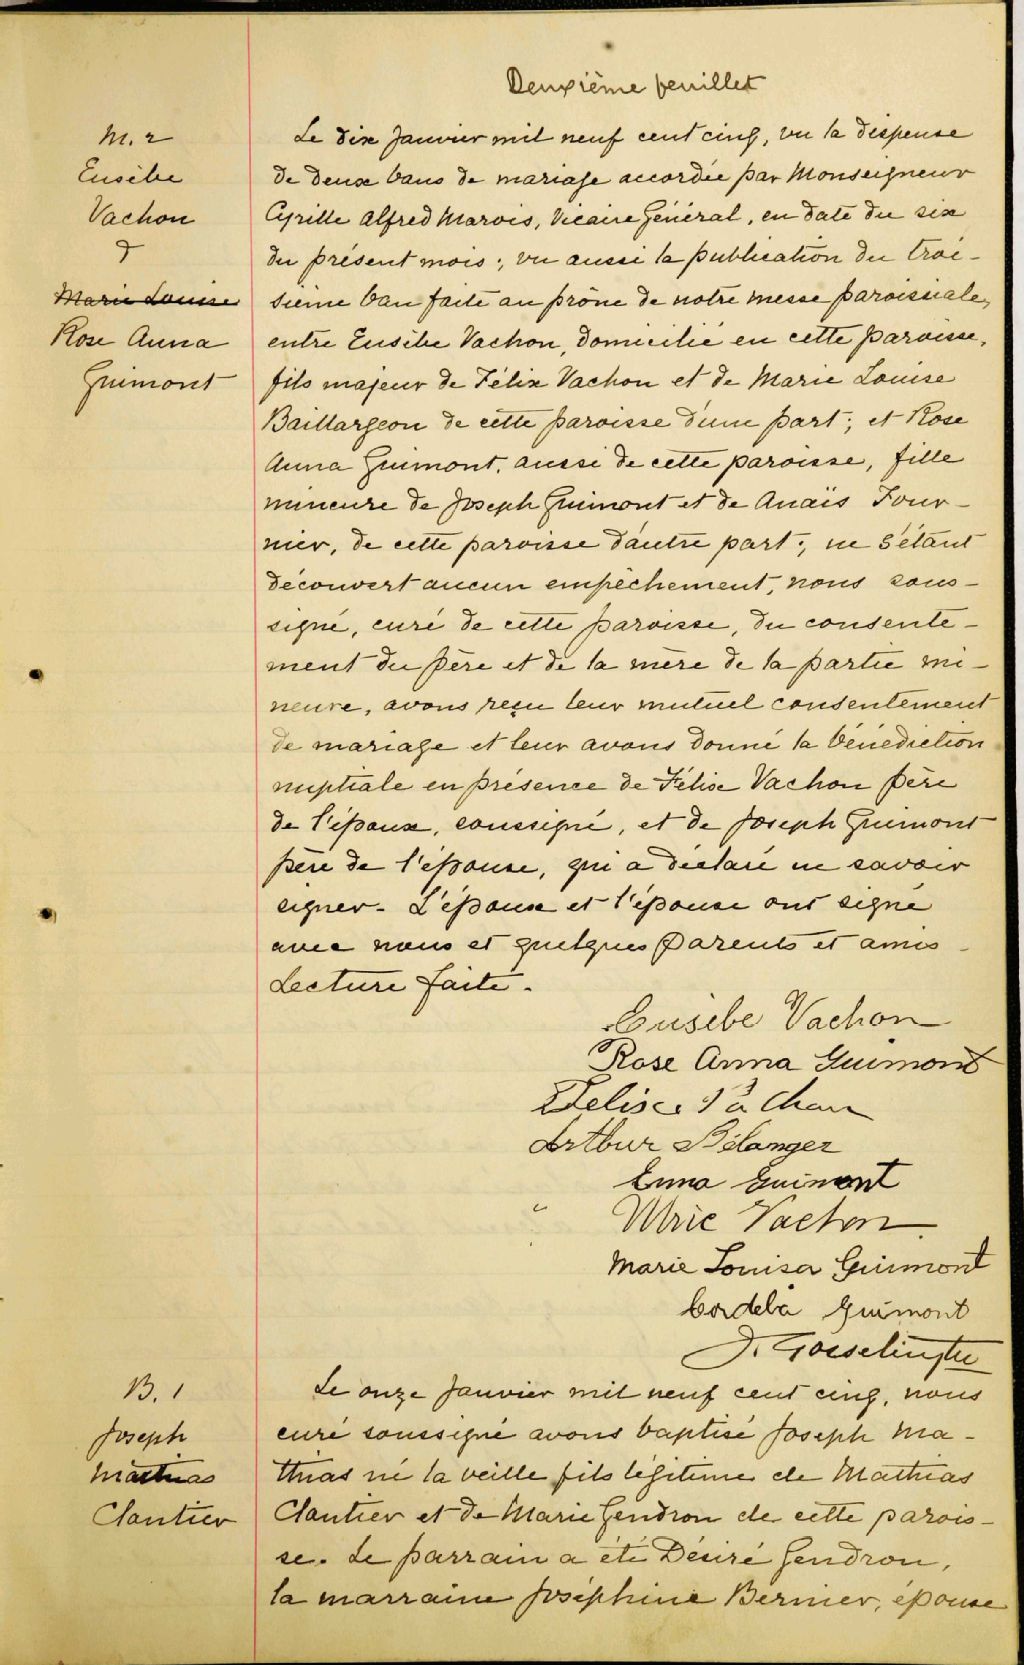 Deuxième feuillet
M. 2
Eusèbe
Vachon
&
Marie Louise
Rose Anna
Guimont
Le dix Janvier mil neuf cent cinq, vu la dispense
de deux bans de mariage accordée par Monseigneur
Cyrille Alfred Marois, Vicaire Général, en date du six
du présent mois ; vu aussi la publication du troi-
sième ban faite au prône de notre messe paroissiale,
entre Eusèbe Vachon, domicilié en cette paroisse,
fils majeur de Félix Vachon et de Marie Louise
Baillargeon de cette paroisse d'une part ; et Rose
Anna Guimont, aussi de cette paroisse, fille
mineure de Joseph Guimont et de Anaïs Four-
nier, de cette paroisse d'autre part ; ne s'étant
découvert aucun empêchement, nous sous-
signé, curé de cette paroisse, du consente-
ment du père et de la mère de la partie mi-
neure, avons reçu leur mutuel consentement
de mariage et leur avons donné la bénédiction
nuptiale en présence de Félix Vachon père
de l'époux, soussigné, et de Joseph Guimont
père de l'épouse, qui a déclaré ne savoir
signer - L'époux et l'épouse ont signé
avec nous et quelques parents et amis -
Lecture faite -
Eusèbe Vachon
Rose Anna Guimont
Felixe Vachon
Arthur Bélanger
Emma Guimont
Ulric Vachon
Marie Louisa Guimont
Cordelia Guimont
J. Gosselin ptre
B. 1
Joseph
Mathias
Cloutier
Le onze Janvier mil neuf cent cinq, nous
curé soussigné avons baptisé Joseph Ma-
thias né la veille fils légitime de Mathias
Cloutier et de Marie Gendron de cette parois-
se. Le parrain a été Désiré Gendron,
la marraine Joséphine Bernier, épouse